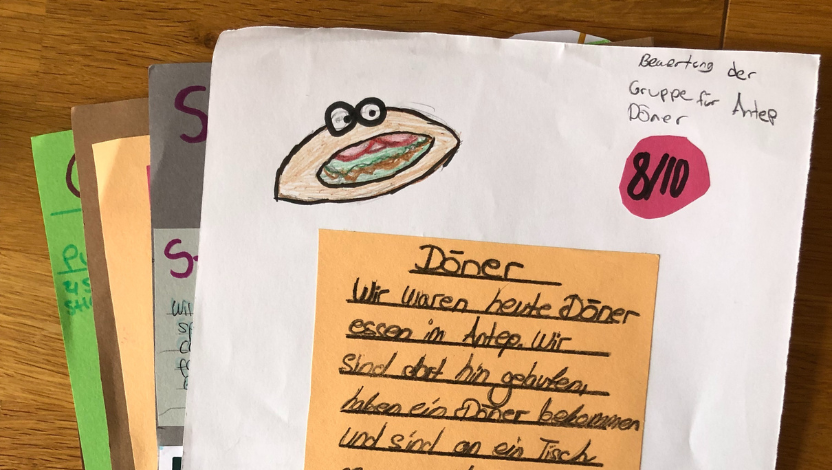 Bewertung der
Gruppe für Antep
Döner
8/10
Döner
Wir waren heute Döner
essen in Antep. Wir
sind dort hin gelaufen,
haben ein Döner bekommen
und sind an ein Tisch